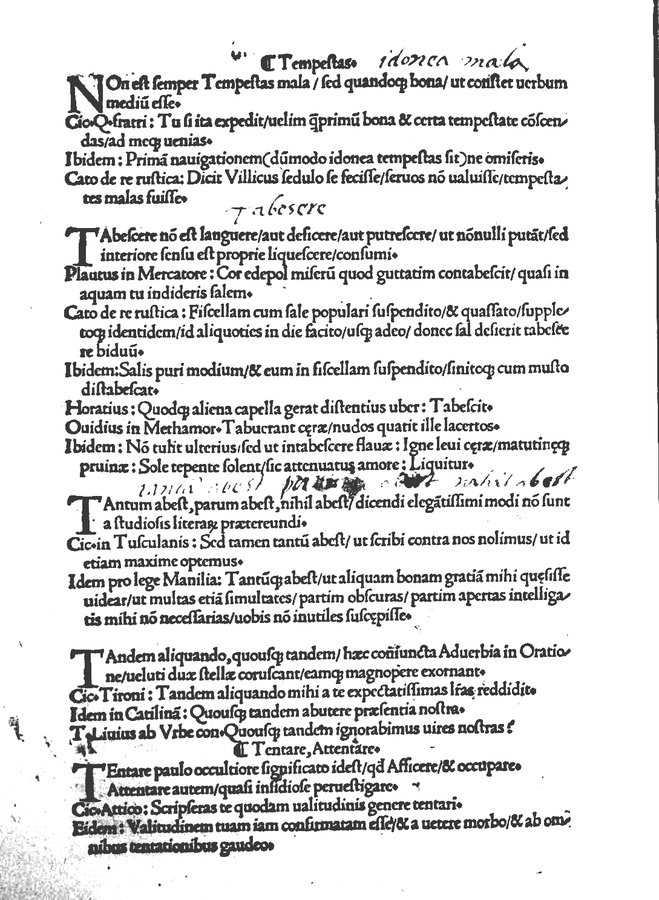 ¶ Tempestas. idonea mala
NOn est semper Tempestas mala / sed quandoq; bona / ut constet uerbum
mediū esse.
Cic. Q. fratri : Tu si ita expedit/uelim q̄primū bona & certa tempestate cōscen/
das/ad meq; uenias.
Ibidem : Primā nauigationem(dūmodo idonea tempestas sit)ne omiseris.
Cato de re rustica : Dicit Villicus sedulo se fecisse/seruos nō ualuisse/tempesta/
tes malas fuisse.
Tabescere
TAbescere nō est languere/aut deficere/aut putrescere/ ut nōnulli putāt/sed
interiore sensu est proprie liquescere/consumi.
Plautus in Mercatore : Cor edepol miserū quod guttatim contabescit/ quasi in
aquam tu indideris salem.
Cato de re rustica : Fiscellam cum sale populari suspendito/& quassato/supple/
toq; identidem/id aliquoties in die facito/usq; adeo/ donec sal desierit tabesce
re biduū.
Ibidem:Salis puri modium/& eum in fiscellam suspendito/sinitoq; cum musto
distabescat.
Horatius : Quodq; aliena capella gerat distentius uber : Tabescit.
Ouidius in Methamor. Tabucrant cęræ/nudos quatit ille lacertos.
Ibidem : Nō tulit ulterius/sed ut intabescere flauæ : Igne leui cęræ/matutinęq;
pruinæ : Sole tepente solent/sic attenuatus amore : Liquitur.
tantū abest parum abest nihil abest
TAntum abest, parum abest, nihil abest/ dicendi elegātissimi modi nō sunt
a studiosis literaꝝ prætereundi.
Cic. in Tusculanis : Sed tamen tantū abest/ ut scribi contra nos nolimus/ ut id
etiam maxime optemus.
Idem pro lege Manilia: Tantūq; abest/ut aliquam bonam gratiā mihi quęsisse
uidear/ut multas etiā simultates/ partim obscuras/ partim apertas intelliga/
tis mihi nō necessarias/uobis nō inutiles suscępisse.
TAndem aliquando, quousq; tandem/ hæc coniuncta Aduerbia in Oratio/
ne/ueluti duæ stellæ coruscant/eamq; magnopere exornant.
Cic. Tironi : Tandem aliquando mihi a te expectatissimas lr̄as reddidit.
Idem in Catilinā : Quousq; tandem abutere præsentia nostra.
T. Liuius ab Vrbe con. Quousq; tandem ignorabimus uires nostras?
¶ Tentare, Attentare.
TEntare paulo occultiore significato idest/qd̄ Afficere/& occupare.
Attentare autem/quasi insidiose peruestigare.
Cic. Attico : Scripseras te quodam ualitudinis genere tentari.
Eidem : Valitudinem tuam iam confirmatam esse/& a uetere morbo/& ab om/
nibus tentationibus gaudeo.